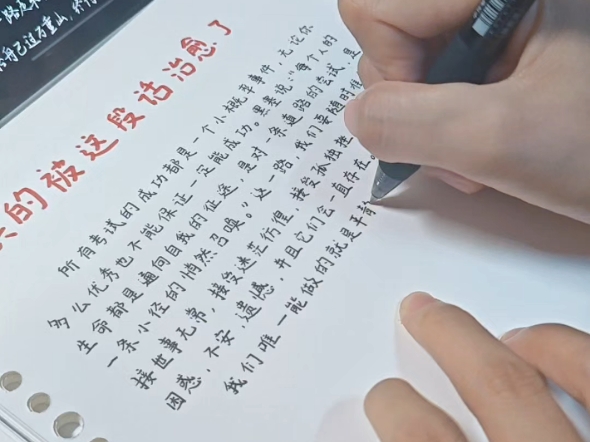 轻舟已过万重山
的被这段话治愈了
所有考试的成功都是一个小概率事件,无论你
多么优秀也不能保证一定能成功。黑塞说:“每个人的
生命都是通向自我的征途,是对一条道路的尝试,是
一条小径的悄然召唤。”这一路,我们要随时准
接世事无常,接受迷茫彷徨,接受孤独挫
困惑,不安,遗憾,并且它们会一直存在。
我们唯一能做的就是平静